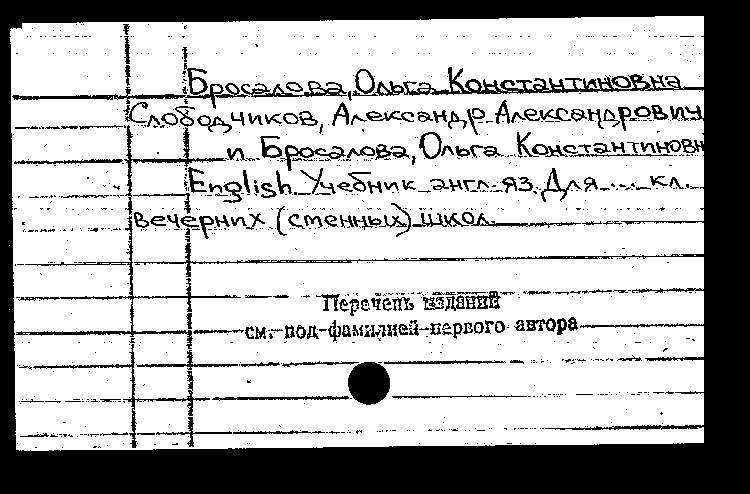 Бросалова, Ольга Константиновна
Слободчиков, Александр Александрович
и Бросалова, Ольга Константиновн
English Учебник англ. яз. Для ... кл.
вечерних (сменных) школ.
Перечень изданий
см. под фамилией первого автора